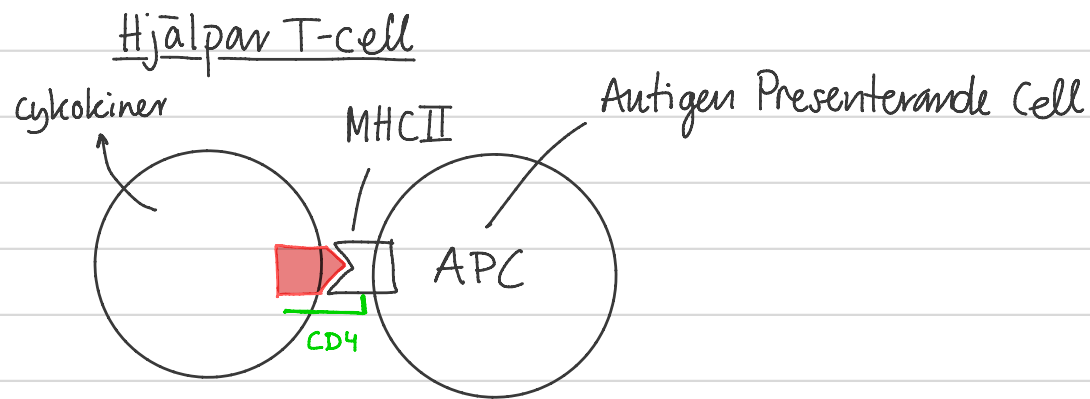 Hjälpar T-cell
Cykokiner
MHCII
Antigen Presenterande Cell
APC
CD4